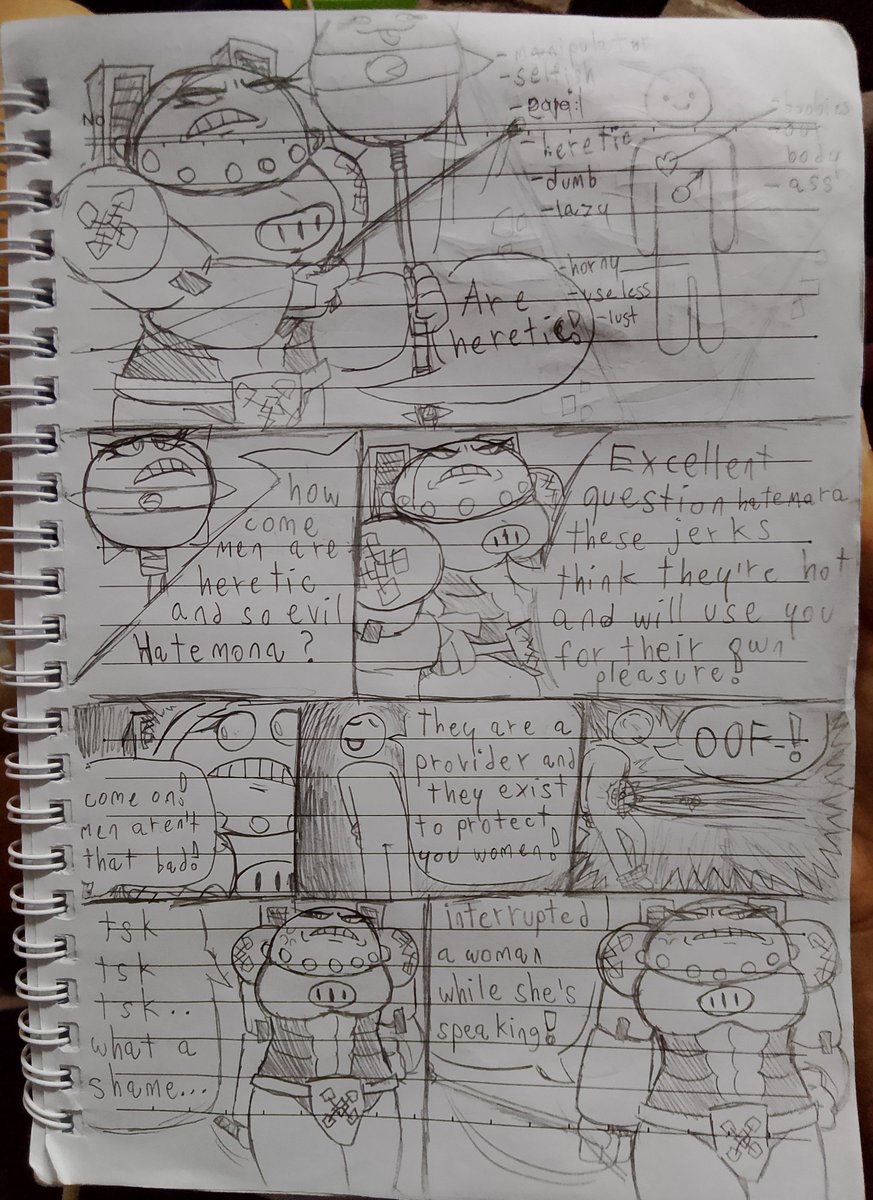 No
- manipulator
- selfish
- evil
- heretic
- dumb
- lazy
- horny
- useless
- lust
- boobies
- our
body
- ass
Are
heretic!
how
come
men are
heretic
and so evil
Hatemona?
Excellent
question hatemara
these jerks
think they're hot
and will use you
for their own
pleasure!
come on!
men aren't
that bad!
they are a
provider and
they exist
to protect
you women!
OOF-!
tsk
tsk
tsk..
what a
shame...
interrupted
a woman
while she's
speaking!